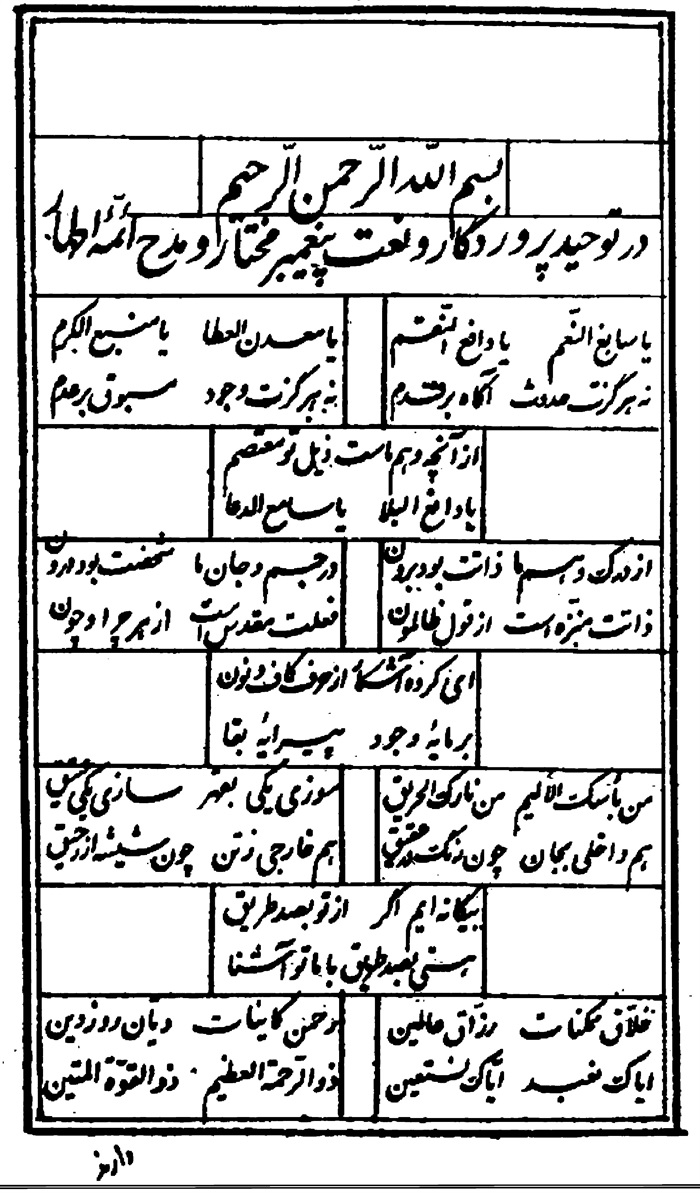 بسم الله الرحمن الرحیم
در توحید پروردگار و نعت پیغمبر مختار و مدح ائمه اطهار
یا سابغ النعم یا دافع النقم
یا معدن العطا یا منبع الکرم
نه هرگزت حدوث آگاه بر قدم
نه هرگزت وجود مسبوق بر عدم
از آنچه وهم ماست ذیل تو معتصم
یا دافع البلا یا سامع الدعا
از درک وهم ما ذاتت بود برون
در جسم و جان ما شخصت بود درون
ذاتت منزه است از قول ظالمون
فعلت مقدس است از هر چرا و چون
ای کرده آشکار از حرف کاف و نون
بر مایهٔ وجود پیرایهٔ بقا
من بأسک الالیم من نارک الحریق
سوزی یکی بقهر سازی یکی
هم داخلی بجان چون رنگ در عقیق
هم خارجی ز تن چون شیشه از رحیق
بیگانه ایم اگر از تو بصد طریق
هستی بصد طریق با ما تو آشنا
خلاق ممکنات رزاق عالمین
رحمن کاینات دیان روز دین
ایاک نعبد ایاک نستعین
ذو الرحمة العظیم ذو القوة المتین